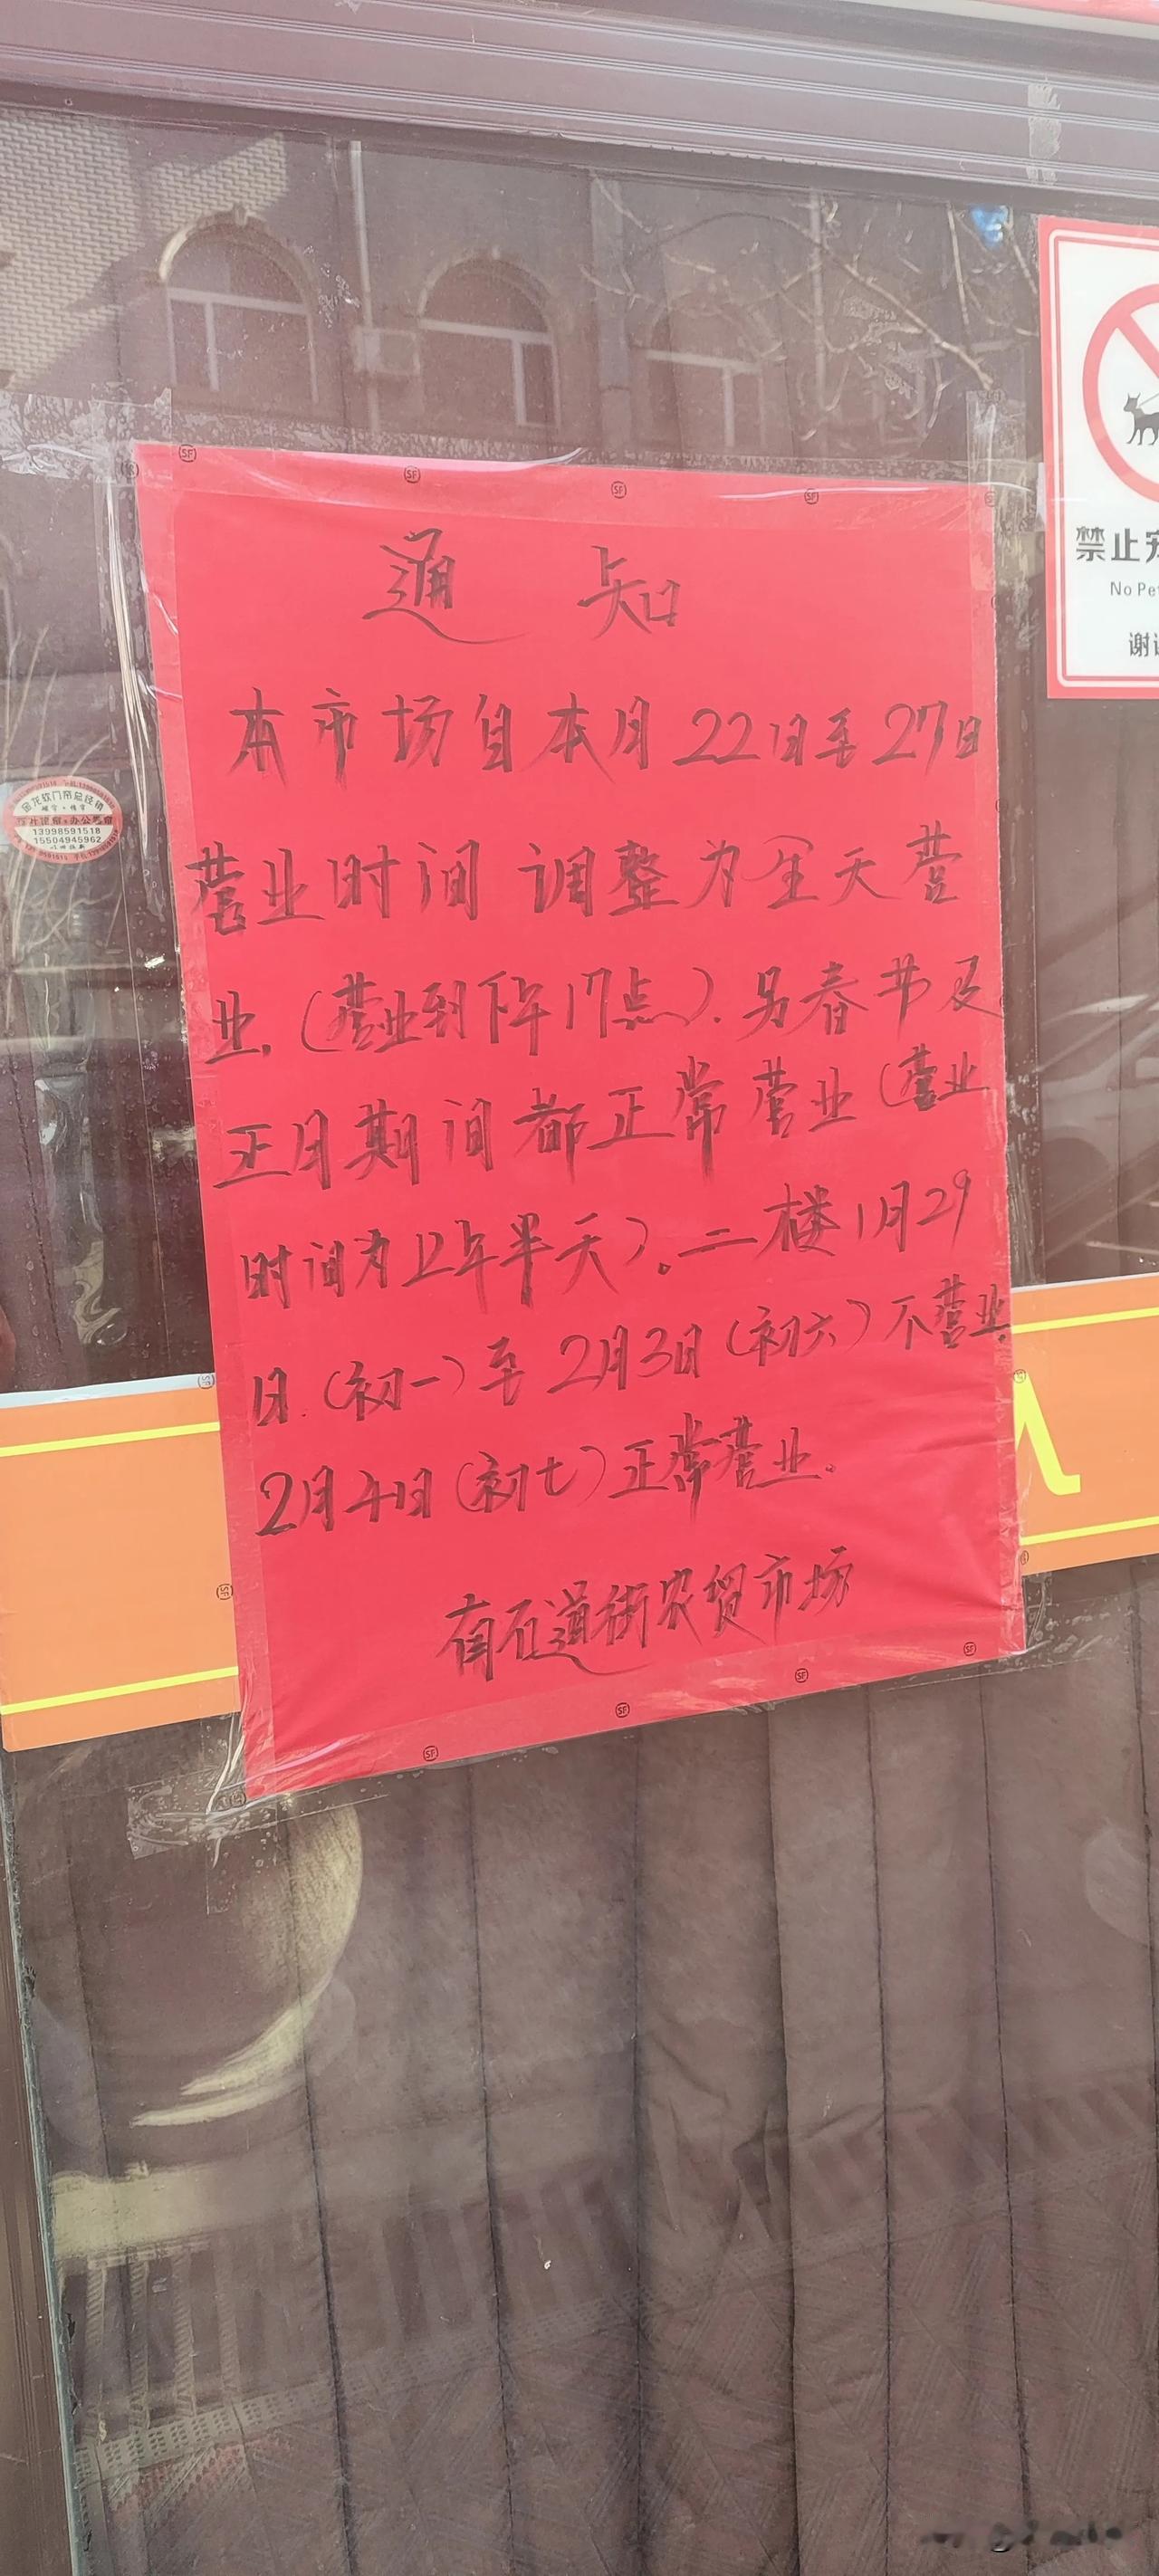 通 知
本市场自本月22日至27日
营业时间调整为全天营
业.(营业到下午17点).另春节及
正月期间都正常营业(营业
时间为上午半天)。二楼1月29
日.(初一)至2月3日(初六)不营业.
2月4日(初七)正常营业。
有石道街农贸市场
禁止宠
No Pe
谢谢
金龙软门帘总经销
13998591518
15504945962